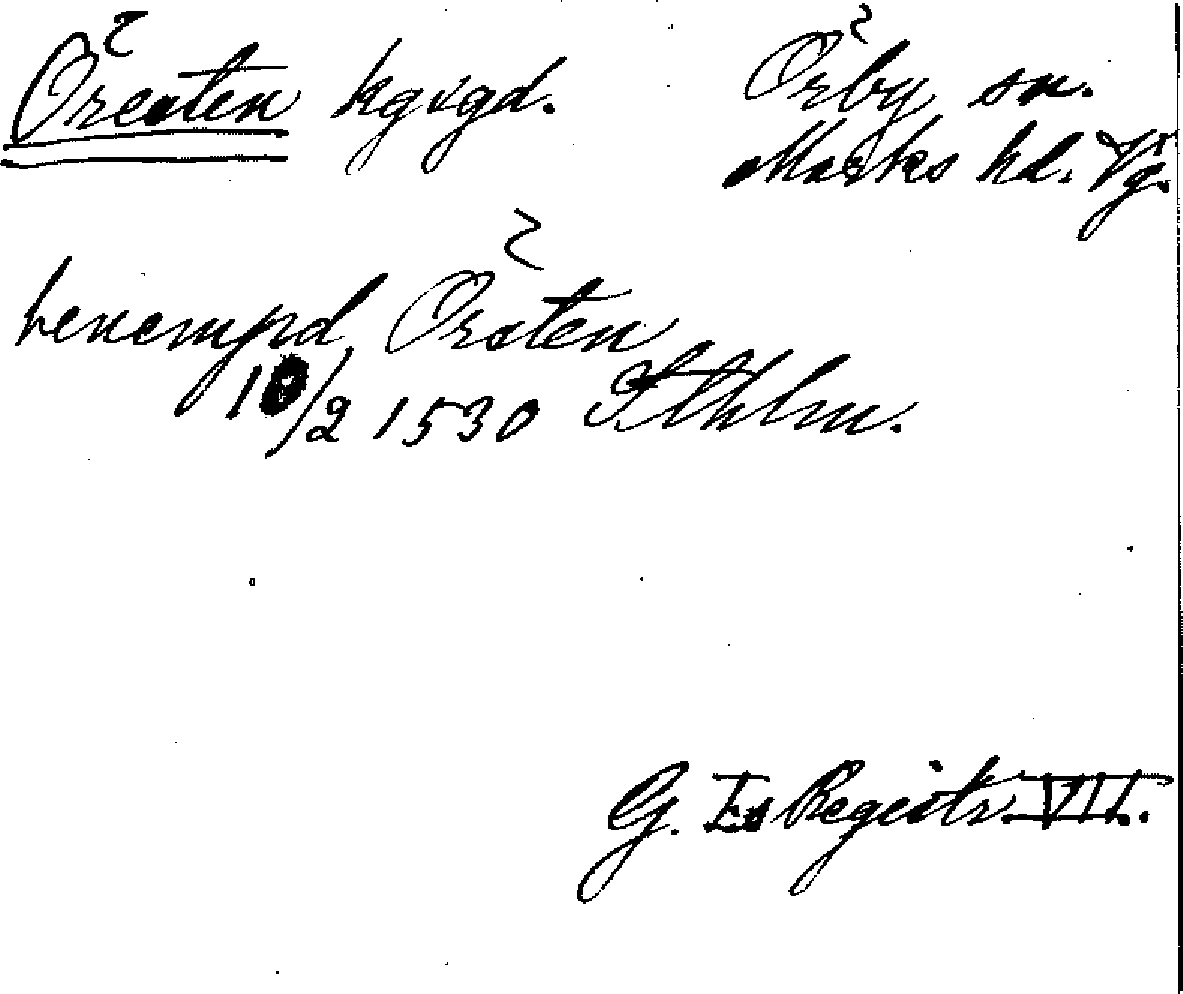 Öresten kgsgd. Örby sn.
Marks hd. Vg.
benempd Örsten
10/2 1530 Sthlm.
G. Is Registr. VII.